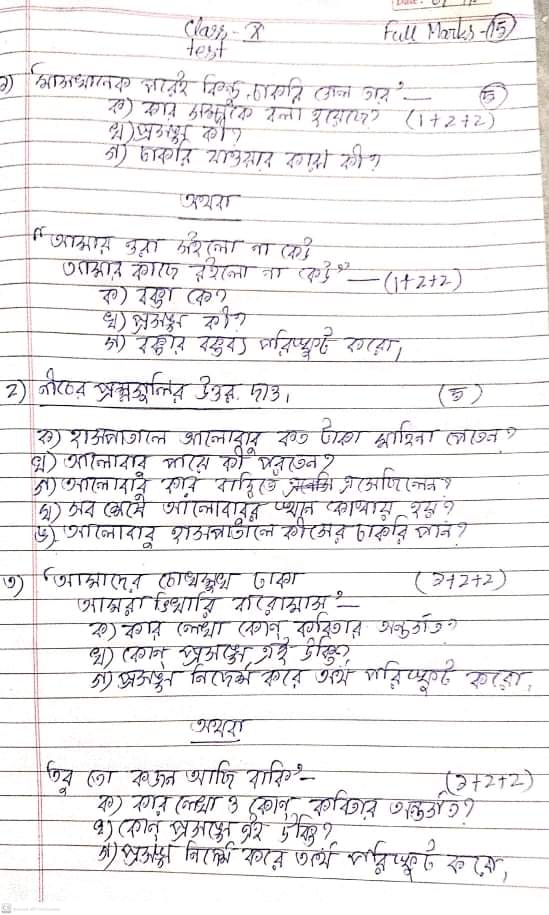 Class - X Full Marks - (15)
test
১) "মাসখানেক পরেই কিন্তু চাকরি গেল তার" — (৫)
ক) কার সম্পর্কে বলা হয়েছে? (1+2+2)
খ) প্রসঙ্গ কী?
গ) চাকরি যাওয়ার কারণ কী?
অথবা
"আমার ওরা সইলো না কেউ
আমার কাছে রইলো না কেউ" — (1+2+2)
ক) বক্তা কে?
খ) প্রসঙ্গ কী?
গ) বক্তার বক্তব্য পরিস্ফুট করো।
2) নীচের প্রশ্নগুলির উত্তর দাও। (৫)
ক) হাসপাতালে আলোবাবু কত টাকা মাহিনা পেতেন?
খ) আলোবাবু পায়ে কী পরতেন?
গ) আলোবাবু কার বাড়িতে এসেছিলেন?
ঘ) সব শেষে আলোবাবুর স্থান কোথায় হয়?
ঙ) আলোবাবু হাসপাতালে কীসের চাকরি পান?
৩) "আমাদের চোখমুখ ঢাকা (১+2+2)
আমরা ভিখারি বারোমাস" —
ক) কার লেখা কোন্ কবিতার অন্তর্গত?
খ) কোন্ প্রসঙ্গে এই উক্তি?
গ) প্রসঙ্গ নির্দেশ করে অর্থ পরিস্ফুট করো।
অথবা
তবু তো কজন আছি বাকি" — (১+2+2)
ক) কার লেখা ও কোন্ কবিতার অন্তর্গত?
খ) কোন্ প্রসঙ্গে এই উক্তি?
গ) প্রসঙ্গ নির্দেশ করে অর্থ পরিস্ফুট করো।